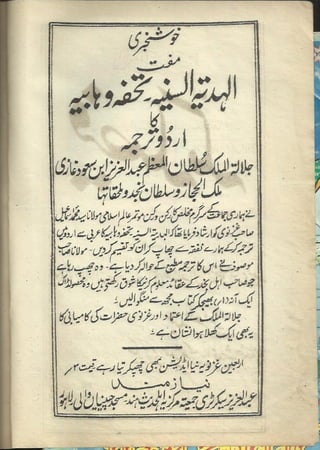 خوشخبری
مفت
الہدیۃ السنیہ تحفہ وہابیہ
کا
اردو ترجمہ
جلالۃ الملک سلطان المعظم عبدالعزیز ابن سعود غازی
ملک الحجاز و سلطان نجد و ملحقاتہا
نے ہماری جماعت کے سرگرم مخلص کارکن و رکن موتمر عالم اسلامی مولانا سید محمد اسماعیل
صاحب غزنوی کو ارشاد فرمایا تھا کہ الہدیۃ السنیہ تحفہ وہابیہ کا عربی سے اردو میں
ترجمہ کر کے ہمارے نفقہ سے چھاپ کر ان کو تقسیم کر دیں۔ مولانا صاحب
موصوف نے اس کا ترجمہ مطبع کے حوالہ کر دیا ہے۔ وہ چھپ رہا ہے
جو صاحب اہل نجد کے عقائد معلوم کرنیکا شوق رکھتے ہیں وہ محصولڈاک
ایک آنہ (۱ر) بھیجکر کتاب مجھ سے منگوالیں۔
جلالۃ الملک کے اعتماد اور غزنوی حضرات کی کامیابی کا
یہ بھی ایک کھلا ہوا نشان ہے۔
اربعین غزنویہ نیا ایڈیشن بھی چھپکر تیار ہے قیمت ۳ر
نیازمند
عبدالعزیز سیکرٹری جمعیۃ مرکزیہ اہلحدیث ہند مسجد چینیانوالی لاہور